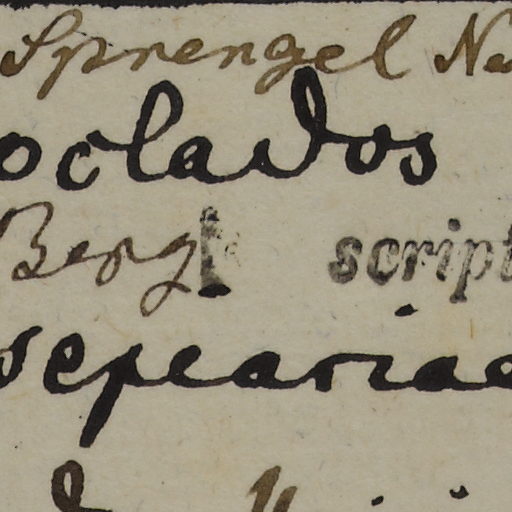 Sprengel Ne
oclados
Berg. script
sepeariae